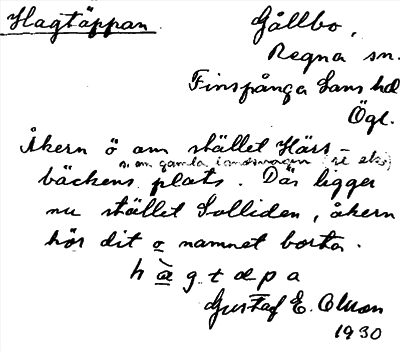 Hagtäppan. Gållbo,
Regna sn.
Finspånga läns hd
Ögl.
Åkern ö om stället Härs-
n om gamla landsvägen (se
bäckens plats. Där ligger
nu stället Solliden, åkern
hör dit o namnet borta.
hàgtæpa
Gustaf E. Olson
1930